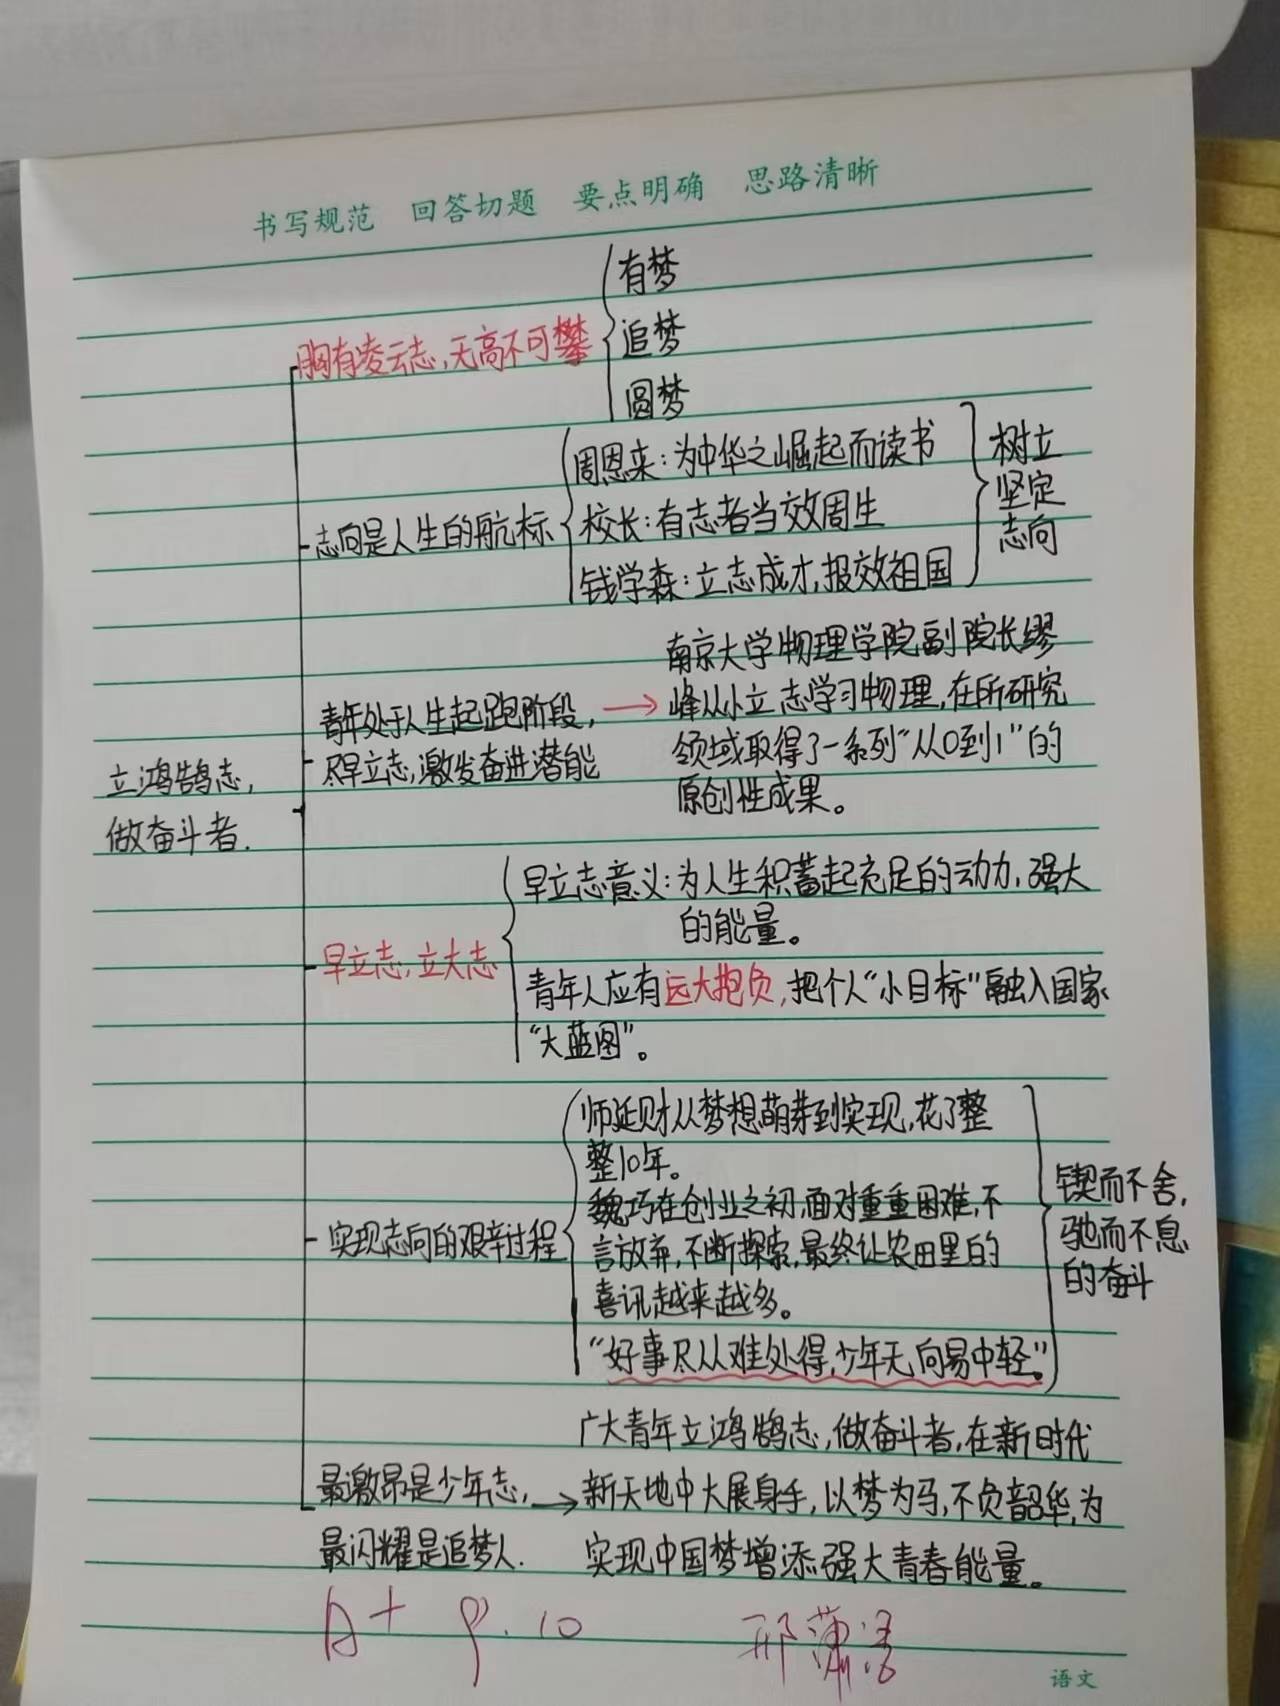 书写规范 回答切题 要点明确 思路清晰
有梦
胸有凌云志，无高不可攀
追梦
圆梦
周恩来：为中华之崛起而读书
志向是人生的航标
校长：有志者当效周生
钱学森：立志成才，报效祖国
树立
坚定
志向
青年处于人生起跑阶段，
尽早立志，激发奋进潜能
南京大学物理学院副院长缪
峰从小立志学习物理，在所研究
领域取得了一系列“从0到1”的
原创性成果。
立鸿鹄志，
做奋斗者.
早立志，立大志
早立志意义：为人生积蓄起充足的动力、强大
的能量。
青年人应有远大抱负，把个人“小目标”融入国家
“大蓝图”。
实现志向的艰辛过程
师延财从梦想萌芽到实现，花了整
整10年。
魏巧在创业之初，面对重重困难，不
言放弃，不断探索，最终让农田里的
喜讯越来越多。
“好事尽从难处得，少年无向易中轻。”
锲而不舍，
驰而不息
的奋斗
最激昂是少年志，
最闪耀是追梦人.
广大青年立鸿鹄志，做奋斗者，在新时代
新天地中大展身手，以梦为马，不负韶华，为
实现中国梦增添强大青春能量。
A+ 9.10
语文